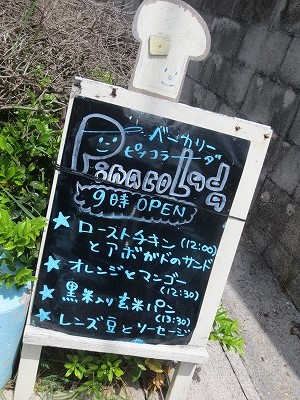 ベーカリー
ピナコラーダ
PiNACOLADA
9時 OPEN
★ ローストチキン (12:00)
とアボガドのサンド
★ オレンジとマンゴー
(12:30)
★ 黒米入り玄米パン
(13:30)
★ レンズ豆とソーセージ